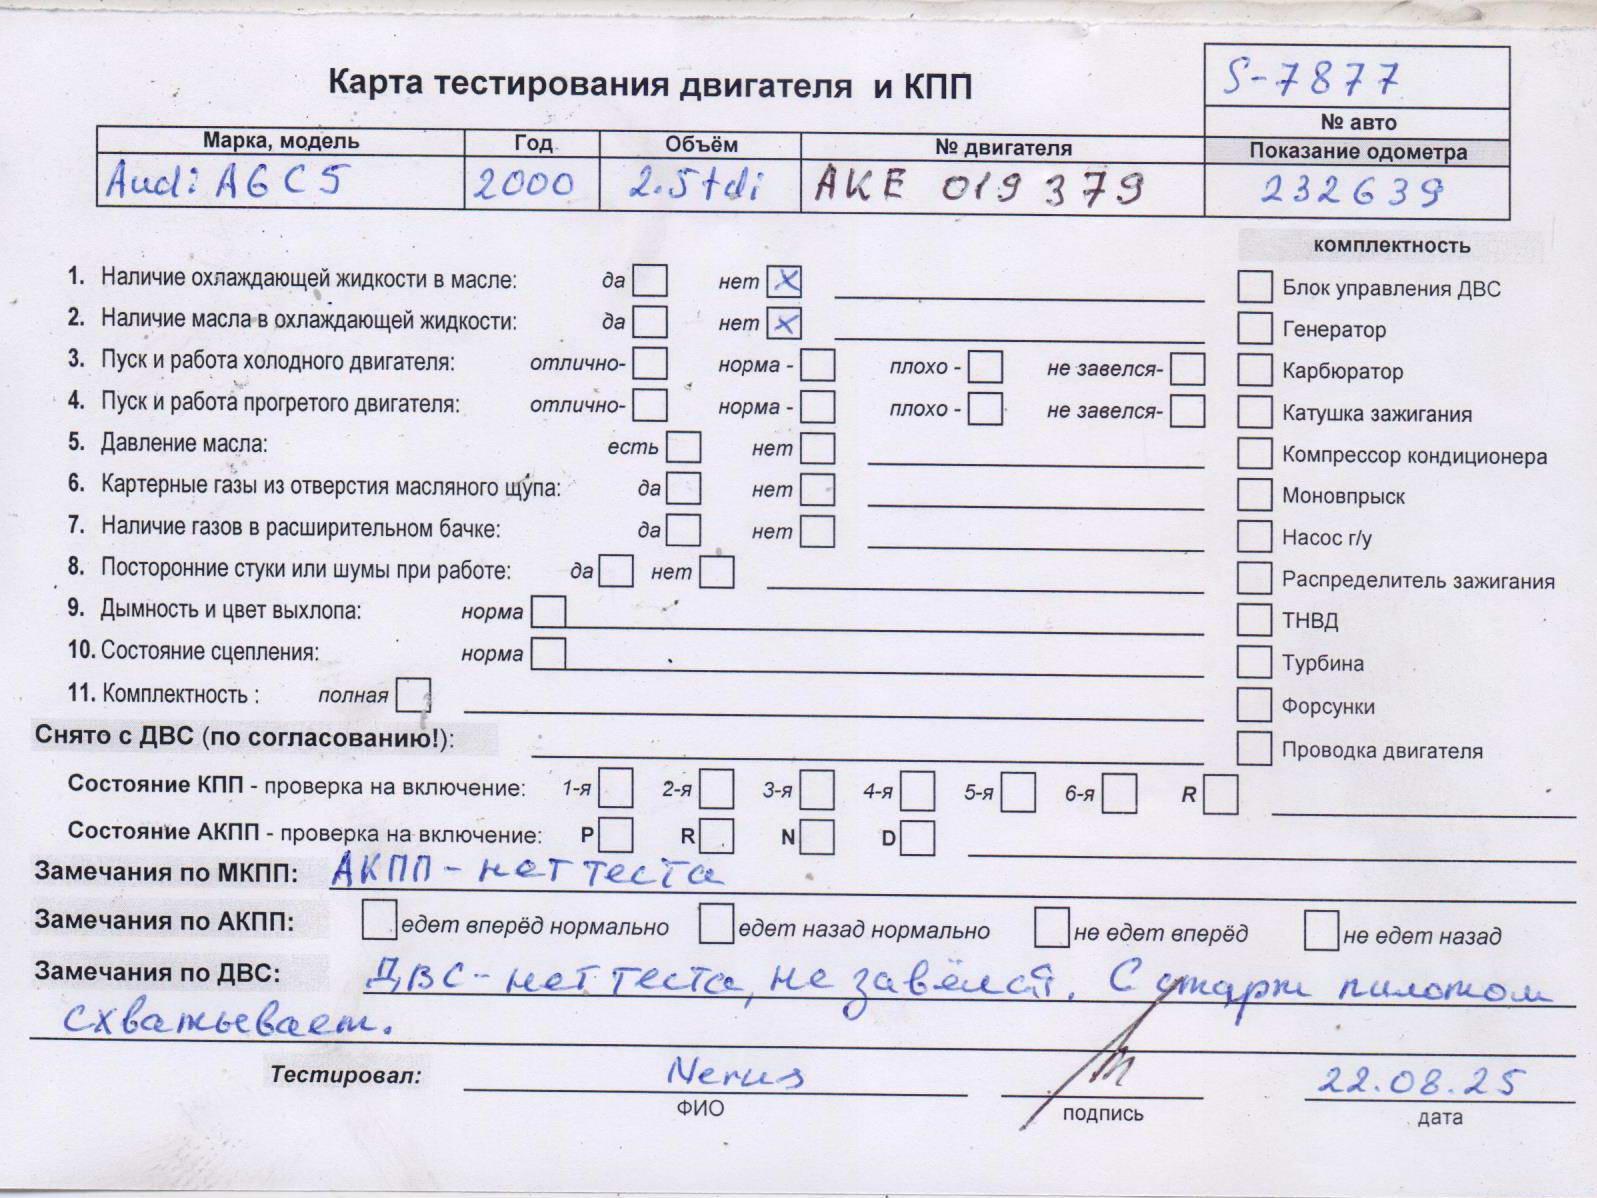 Карта тестирования двигателя и КПП
S-7877
№ авто
Марка, модель Год Объём № двигателя Показание одометра
Audi A6 C5 2000 2.5tdi AKE 019379 232639
комплектность
1. Наличие охлаждающей жидкости в масле: да нет X
Блок управления ДВС
2. Наличие масла в охлаждающей жидкости: да нет X
Генератор
3. Пуск и работа холодного двигателя: отлично- норма - плохо - не завелся-
Карбюратор
4. Пуск и работа прогретого двигателя: отлично- норма - плохо - не завелся-
Катушка зажигания
5. Давление масла: есть нет
Компрессор кондиционера
6. Картерные газы из отверстия масляного щупа: да нет
Моновпрыск
7. Наличие газов в расширительном бачке: да нет
Насос г/у
8. Посторонние стуки или шумы при работе: да нет
Распределитель зажигания
9. Дымность и цвет выхлопа: норма
ТНВД
10. Состояние сцепления: норма
Турбина
11. Комплектность : полная
Форсунки
Снято с ДВС (по согласованию!):
Проводка двигателя
Состояние КПП - проверка на включение: 1-я 2-я 3-я 4-я 5-я 6-я R
Состояние АКПП - проверка на включение: P R N D
Замечания по МКПП: АКПП - нет теста
Замечания по АКПП: едет вперёд нормально едет назад нормально не едет вперёд не едет назад
Замечания по ДВС: ДВС - нет теста, не завёлся. С старт пилотом
схватывает.
Тестировал: Nerus 22.08.25
ФИО подпись дата